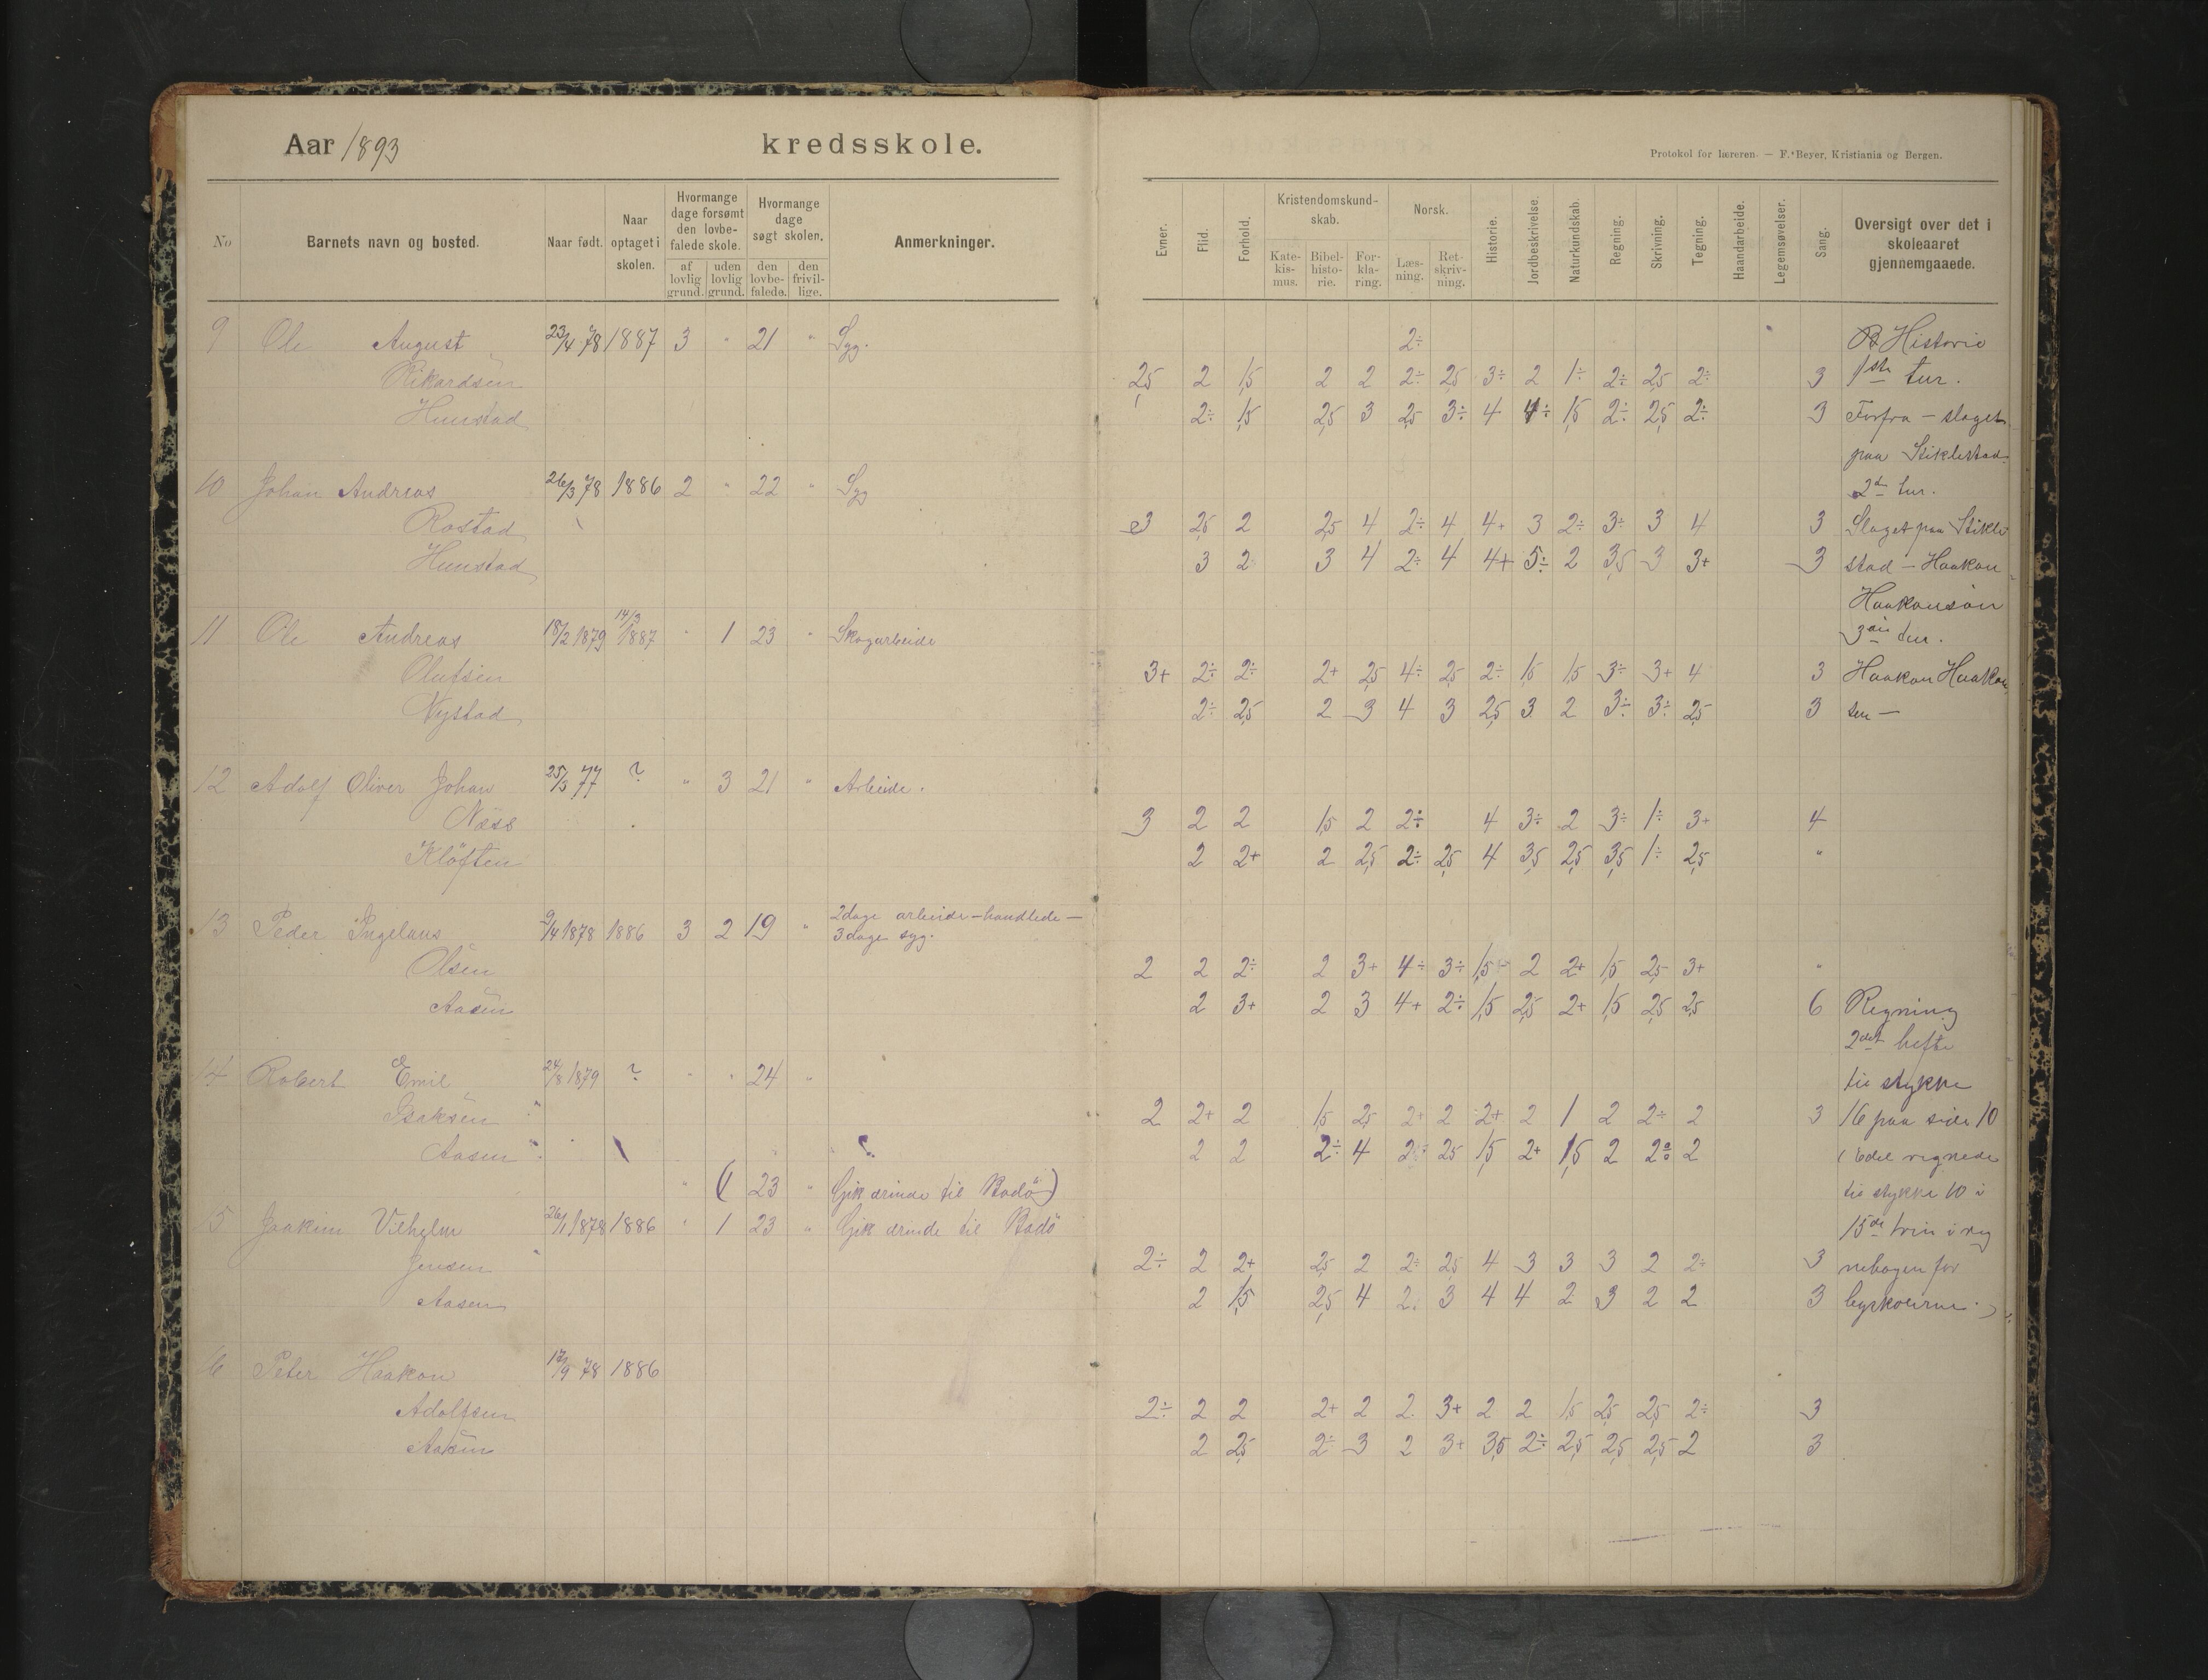 Aar 1893
kredsskole.
No
Barnets navn og bosted.
Naar født.
Naar optaget i skolen.
Hvormange dage forsømt den lovbefalede skole.
af lovlig grund.
uden lovlig grund.
Hvormange dage søgt skolen.
den lovbefalede.
den frivillige.
Anmerkninger.
9 Ole August 23/4 78 1887 3 " 21 " Syg.
Rikardsen
Hunstad
10 Johan Andreas 26/3 78 1886 2 " 22 " Syg
Rostad
Hunstad
14/3
11 Ole Andreas 18/2 1879 1887 " 1 23 " Skogarbeide
Olufsen
Nystad
12 Adolf Oliver Johan 25/3 77 ? " 3 21 " Arbeide.
Næss
Kløften
13 Peder Ingelaus 9/4 1878 1886 3 2 19 " 2 dage arbeide – handlede –
3 dage syg.
Olsen
Aasen
14 Robert Emil 24/8 1879 ? " " 24 "
Isaksen
Aasen
" ( 23 " Gik ærinde til Bodö)
15 Joakim Vilhelm 26/1 1878 1886 " 1 23 " Gik ærinde til Bodö
Jensen
Aasen
16 Peter Haakon 17/9 78 1886
Adolfsen
Aasen
Protokol for læreren. — F. Beyer, Kristiania og Bergen.
Evner.
Flid.
Forhold.
Kristendomskundskab.
Katekismus.
Bibelhistorie.
Forklaring.
Norsk.
Læsning.
Retskrivning.
Historie.
Jordbeskrivelse.
Naturkundskab.
Regning.
Skrivning.
Tegning.
Haandarbeide.
Legemsøvelser.
Sang.
Oversigt over det i skoleaaret gjennemgaaede.
2÷ B Historie
2,5 2 1,5 2 2 2÷ 2,5 3÷ 2 1÷ 2÷ 2,5 2÷ 3 1ste tur.
2÷ 1,5 2,5 3 2,5 3÷ 4 4÷ 1,5 2÷ 2,5 2÷ 3 Forfra – slaget
paa Stiklestad.
2den tur.
3 2,5 2 2,5 4 2÷ 4 4+ 3 2÷ 3÷ 3 4 3 Slaget paa Stikle
3 2 3 4 2÷ 4 4+ 5÷ 2 3,5 3 3+ 3 stad – Haakon
Haakonsøn
3die tur.
3+ 2÷ 2÷ 2+ 2,5 4÷ 2,5 2÷ 1,5 1,5 3÷ 3+ 4 3 Haakon Haakon
2÷ 2,5 2 3 4 3 2,5 3 2 3÷ 3÷ 2,5 3 sen –
3 2 2 1,5 2 2÷ 4 3÷ 2 3÷ 1÷ 3+ 4
2 2+ 2 2,5 2÷ 2,5 4 3,5 2,5 3,5 1÷ 2,5 "
2 2 2÷ 2 3+ 4÷ 3÷ 1,5 2 2+ 1,5 2,5 3+ "
2 3+ 2 3 4+ 2÷ 1,5 2,5 2+ 1,5 2,5 2,5 6 Regning
2det hefte
til stykke
2 2+ 2 1,5 2,5 2+ 2 2+ 2 1 2 2÷ 2 3 16 paa side 10
2 2 2÷ 4 2÷ 2,5 1,5 2+ 1,5 2 2÷ 2 regnede
til stykke 10 i
15de trin i reg
2÷ 2 2+ 2,5 2 2÷ 2,5 4 3 3 3 2 2÷ 3 nebogen for
2 1,5 2,5 4 2 3 4 4 2 3 2 2 3
2÷ 2 2 2+ 2 2 3+ 2 2 1,5 2,5 2,5 2÷ 3
2 2,5 2÷ 3 2 3+ 3,5 2÷ 2,5 2,5 2,5 2 3